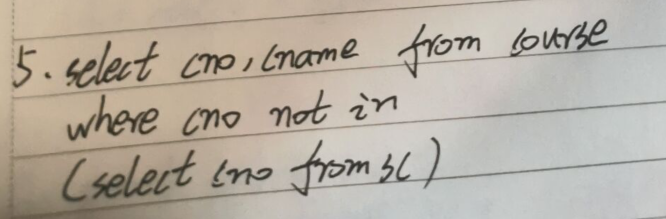 5. select cno, cname from course
where cno not in
(select cno from sc)